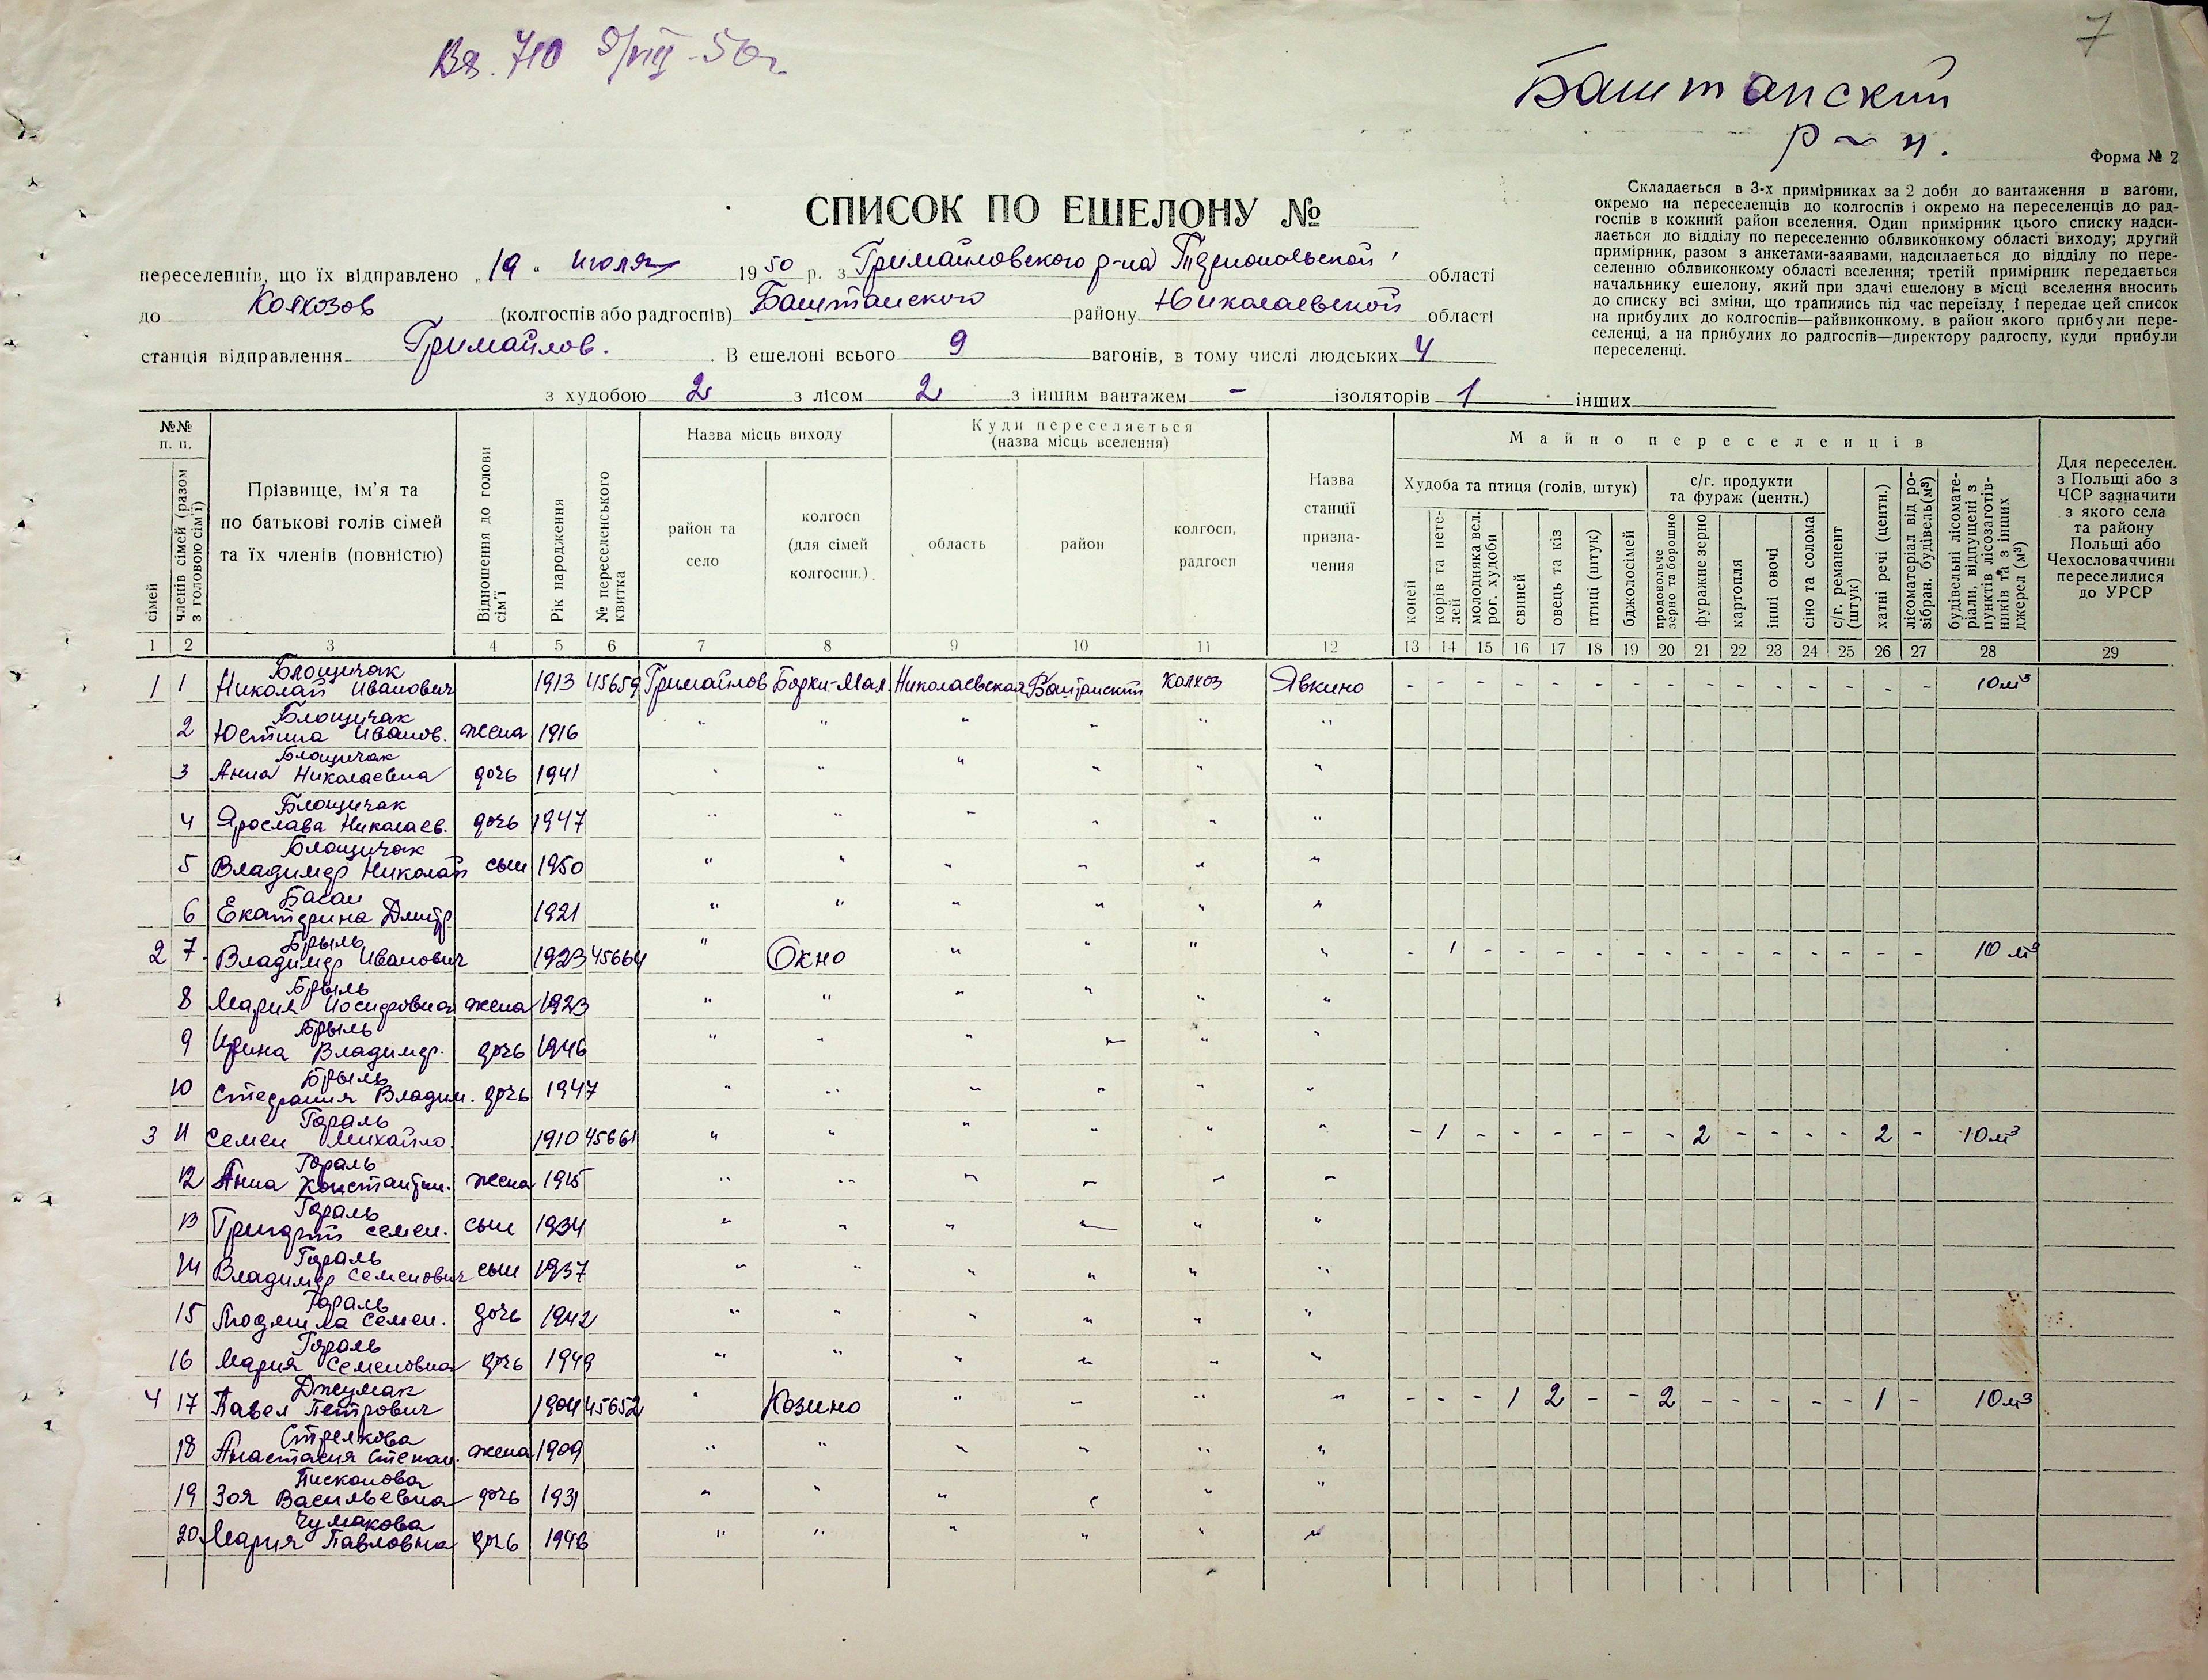 7
Вх. 710 9/VIII-50г.
Баштанский
р-н.
Форма № 2
Складається в 3-х примірниках за 2 доби до вантаження в вагони,
окремо на переселенців до колгоспів і окремо на переселенців до рад-
госпів в кожний район вселення. Один примірник цього списку надси-
лається до відділу по переселенню облвиконкому області виходу; другий
примірник, разом з анкетами-заявами, надсилається до відділу по пере-
селенню облвиконкому області вселення; третій примірник передається
начальнику ешелону, який при здачі ешелону в місці вселення вносить
до списку всі зміни, що трапились під час переїзду, і передає цей список
на прибулих до колгоспів—райвиконкому, в район якого прибули пере-
селенці, а на прибулих до радгоспів—директору радгоспу, куди прибули
переселенці.
СПИСОК ПО ЕШЕЛОНУ №
переселенців, що їх відправлено „19“ июля 1950 р. з Гримайловского р-на Тернопольской області
до Колхозов (колгоспів або радгоспів) Баштанского району Николаевской області
станція відправлення Гримайлов. В ешелоні всього 9 вагонів, в тому числі людських 4
з худобою 2 з лісом 2 з іншим вантажем - ізоляторів 1 інших
№№ п. п.
сімей
членів сімей (разом з головою сім'ї)
Прізвище, ім'я та по батькові голів сімей та їх членів (повністю)
Відношення до голови сім'ї
Рік народження
№ переселенського квитка
Назва місць виходу
район та село
колгосп (для сімей колгоспн.)
Куди переселяється (назва місць вселення)
область
район
колгосп, радгосп
Назва станції призна- чення
Майно переселенців
Худоба та птиця (голів, штук)
коней
корів та нете- лей
молодняка вел. рог. худоби
свиней
овець та кіз
птиці (штук)
бджолосімей
с/г. продукти та фураж (центн.)
продовольче зерно та борошно
фуражне зерно
картопля
інші овочі
сіно та солома
с/г. реманент (штук)
хатні речі (центн.)
лісоматеріал від ро- зібран. будівель (м³)
будівельні лісомате- ріали, відпущені з пунктів лісозаготів- ників та з інших джерел (м³)
Для переселен. з Польщі або з ЧСР зазначити з якого села та району Польщі або Чехословаччини переселилися до УРСР
1 2 3 4 5 6 7 8 9 10 11 12 13 14 15 16 17 18 19 20 21 22 23 24 25 26 27 28 29
1 1 Блощичак Николай Иванович 1913 45659 Гримайлов Борки-Мал. Николаевская Баштанский Колхоз Явкино - - - - - - - - - - - - - - - 10м³
2 Блощичак Юстина Иванов. жена 1916 " " " " " "
3 Блощичак Анна Николаевна дочь 1941 " " " " " "
4 Блощичак Ярослава Николаев. дочь 1947 " " " " " "
5 Блощичак Владимир Николай сын 1950 " " " " " "
6 Басан Екатерина Дмитр. 1921 " " " " " "
2 7. Брыль Владимир Иванович 1923 45664 " Окно " " " " - 1 - - - - - - - - - - - - - 10 м³
8 Брыль Мария Иосифовна жена 1923 " " " " " "
9 Брыль Ирина Владимир. дочь 1946 " " " " " "
10 Брыль Стефания Владим. дочь 1947 " " " " " "
3 11 Гораль Семен Михайло. 1910 45661 " " " " " " - 1 - - - - - - 2 - - - - 2 - 10м³
12 Гораль Анна Константин. жена 1915 " " " " " "
13 Гораль Григорий Семен. сын 1934 " " " " " "
14 Гораль Владимир Семенович сын 1937 " " " " " "
15 Гораль Людмила Семен. дочь 1942 " " " " " "
16 Гораль Мария Семеновна дочь 1949 " " " " " "
4 17 Джумак Павел Петрович 1904 45652 " Козино " " " " - - - 1 2 - - 2 - - - - - 1 - 10м³
18 Стрелкова Анастасия Степан. жена 1909 " " " " " "
19 Пископова Зоя Васильевна дочь 1931 " " " " " "
20 Чумакова Мария Павловна дочь 1946 " " " " " "